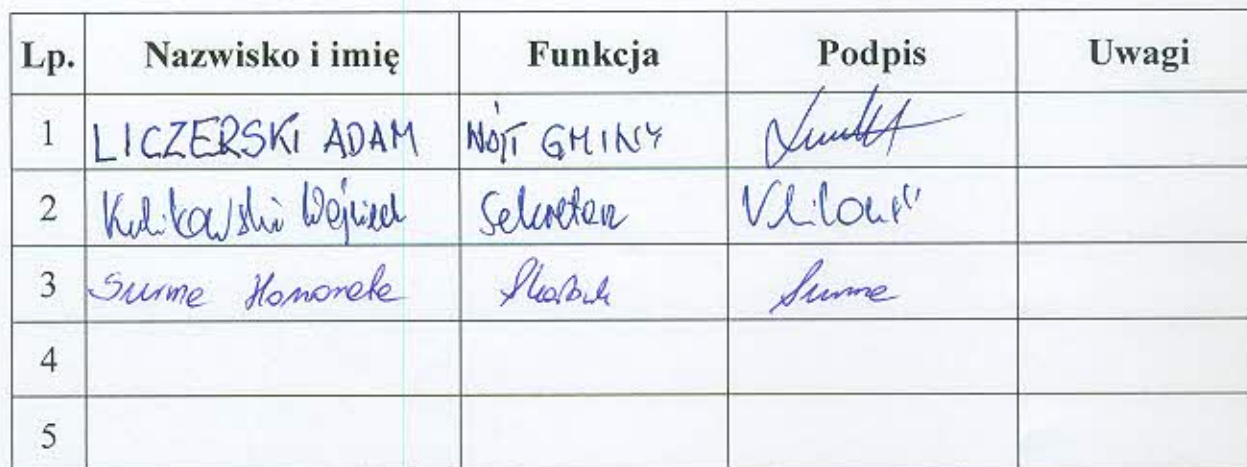 Lp. Nazwisko i imię Funkcja Podpis Uwagi
1 LICZERSKI ADAM WÓJT GMINY
2 Kulikowski Wojciech Sekretarz
3 Surma Honorata Skarbnik Surma
4
5